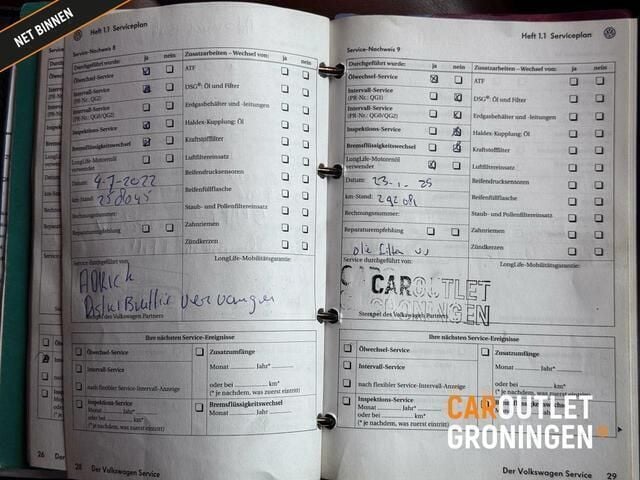 NET BINNEN
Heft 1.1 Serviceplan
Service-Nachweis 8
Durchgeführt wurde: ja nein Zusatzarbeiten – Wechsel von: ja nein
Ölwechsel-Service ATF
Intervall-Service
(PR-Nr.: QG1) DSG®: Öl und Filter
Intervall-Service
(PR-Nr.: QG0/QG2) Erdgasbehälter und -leitungen
Inspektions-Service Haldex-Kupplung: Öl
Bremsflüssigkeitswechsel Kraftstofffilter
LongLife-Motorenöl
verwendet Luftfiltereinsatz
Datum: 4-7-2022 Reifendrucksensoren
km-Stand: Reifenfüllflasche
Rechnungsnummer: Staub- und Pollenfiltereinsatz
Reparaturempfehlung Zahnriemen
Zündkerzen
Service durchgeführt von: LongLife-Mobilitätsgarantie:
Stempel des Volkswagen Partners
Ihre nächsten Service-Ereignisse
Ölwechsel-Service Zusatzumfänge
Intervall-Service Monat Jahr*
nach flexibler Service-Intervall-Anzeige oder bei km*
(* je nachdem, was zuerst eintritt)
Inspektions-Service Bremsflüssigkeitswechsel
Monat Jahr* Monat Jahr*
oder bei km* oder bei km*
(* je nachdem, was zuerst eintritt)
26
28 Der Volkswagen Service
Heft 1.1 Serviceplan
Service-Nachweis 9
Durchgeführt wurde: ja nein Zusatzarbeiten – Wechsel von: ja nein
Ölwechsel-Service ATF
Intervall-Service
(PR-Nr.: QG1) DSG®: Öl und Filter
Intervall-Service
(PR-Nr.: QG0/QG2) Erdgasbehälter und -leitungen
Inspektions-Service Haldex-Kupplung: Öl
Bremsflüssigkeitswechsel Kraftstofffilter
LongLife-Motorenöl
verwendet Luftfiltereinsatz
Datum: 23-1-25 Reifendrucksensoren
km-Stand: Reifenfüllflasche
Rechnungsnummer: Staub- und Pollenfiltereinsatz
Reparaturempfehlung Zahnriemen
Zündkerzen
Service durchgeführt von: LongLife-Mobilitätsgarantie:
CAROUTLET
GRONINGEN
Stempel des Volkswagen Partners
Ihre nächsten Service-Ereignisse
Ölwechsel-Service Zusatzumfänge
Intervall-Service Monat Jahr*
nach flexibler Service-Intervall-Anzeige oder bei km*
(* je nachdem, was zuerst eintritt)
Inspektions-Service
Monat Jahr*
oder bei km*
(* je nachdem, was zuerst eintritt)
CAROUTLET
GRONINGEN
Der Volkswagen Service 29